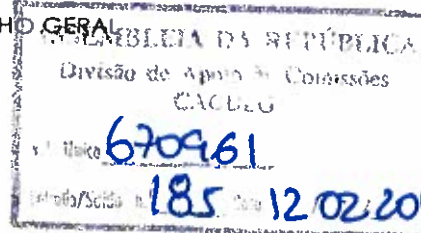 HO GERAL
ASSEMBLEIA DA REPÚBLICA
Divisão de Apoio às Comissões
CACDLG
Única 670961
Entrada/Saída 185 12/02/20